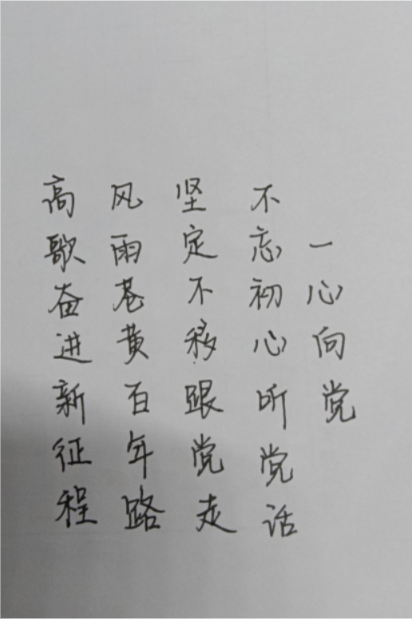 一心向党
不忘初心听党话
坚定不移跟党走
风雨苍黄百年路
高歌奋进新征程